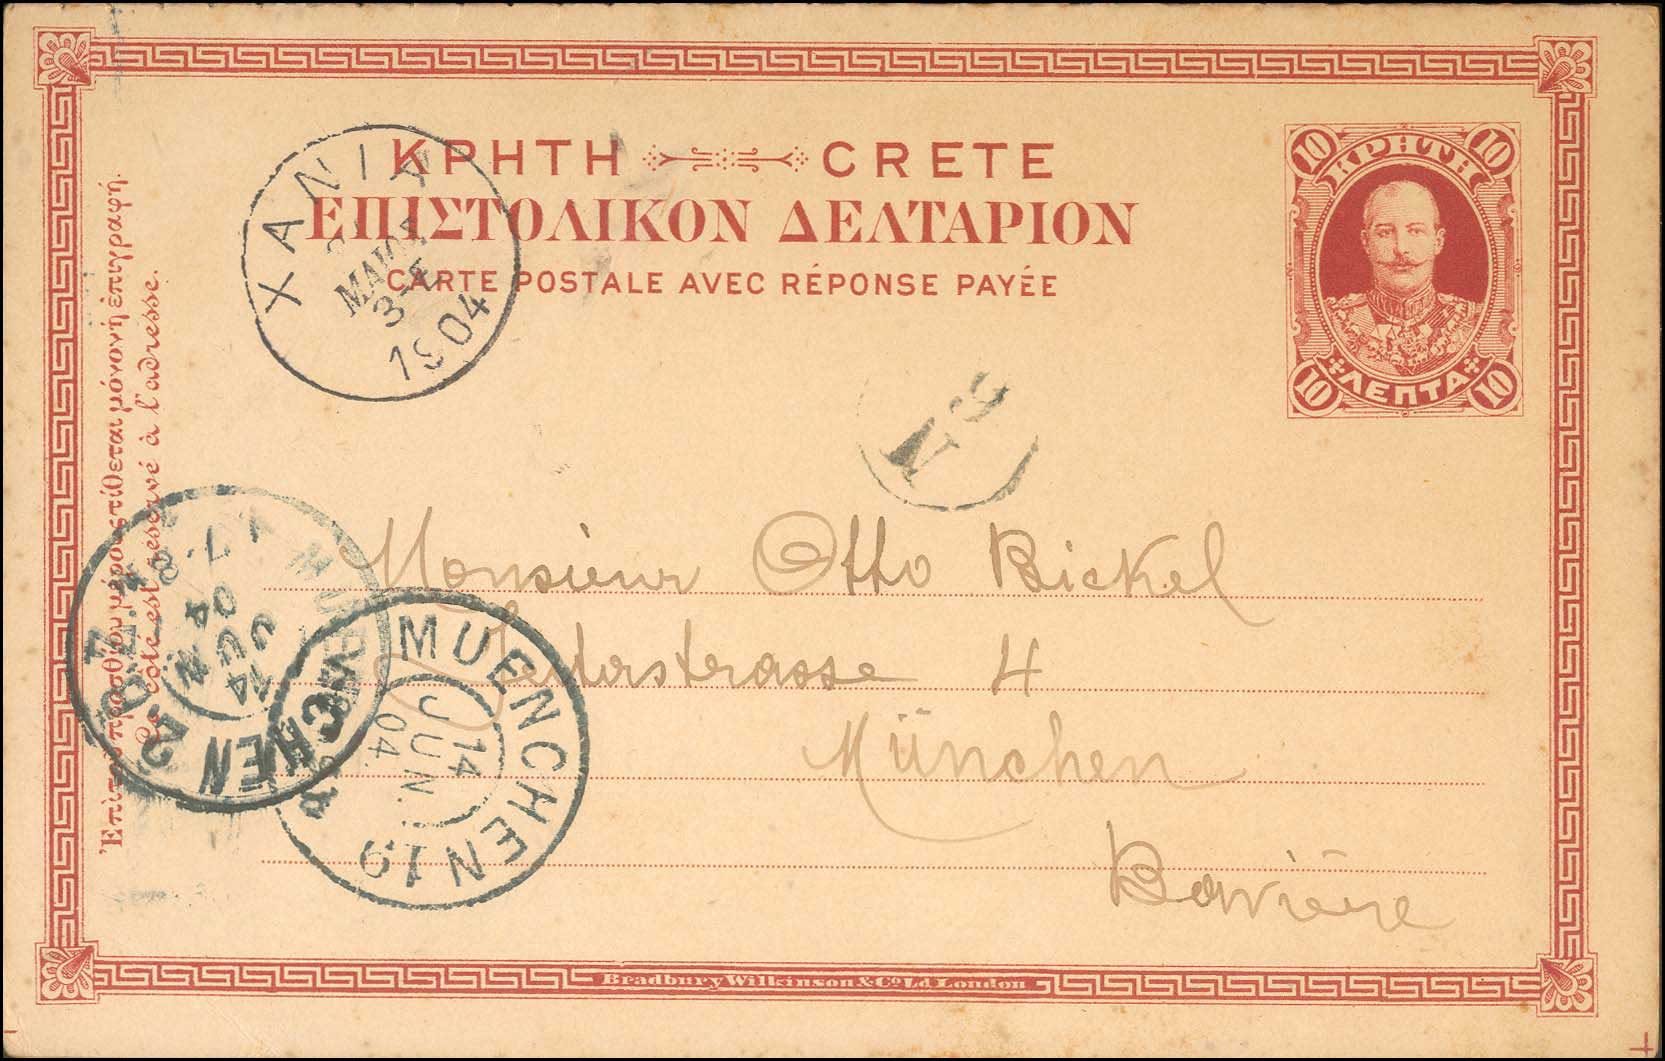 ΚΡΗΤΗ CRETE
ΕΠΙΣΤΟΛΙΚΟΝ ΔΕΛΤΑΡΙΟΝ
CARTE POSTALE AVEC RÉPONSE PAYÉE
10 ΚΡΗΤΗ 10
10 ΛΕΠΤΑ 10
ΧΑΝΙΑ
ΜΑΙΟΣ
3-
1904
9
N
Monsieur Otto Bickel
4
München
Bavière
MUENCHEN 19
14
JUN.
04.
MUENCHEN 2.B.Z.
14
JUN
04
7-8
Ἐπὶ τοῦ προσθίου μέρους τίθεται μόνον ἡ ἐπιγραφή.
Ce côté est réservé à l'adresse.
Bradbury Wilkinson & Co Ld London